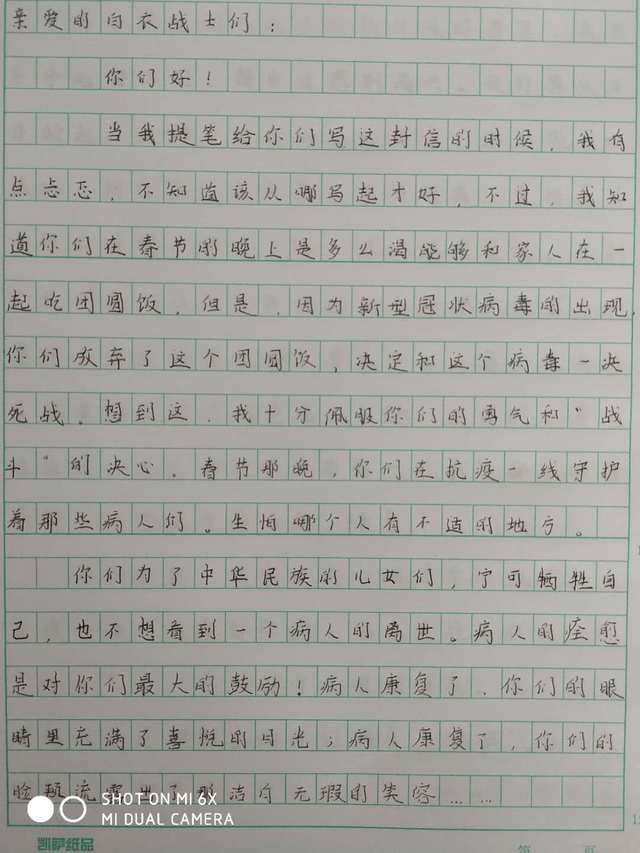 亲爱的白衣战士们：
你们好！
当我提笔给你们写这封信的时候，我有
点忐忑，不知道该从哪写起才好，不过，我知
道你们在春节的晚上是多么渴能够和家人在一
起吃团圆饭，但是，因为新型冠状病毒的出现，
你们放弃了这个团圆饭，决定和这个病毒一决
死战。想到这，我十分佩服你们的勇气和“战
斗”的决心。春节那晚，你们在抗疫一线守护
着那些病人们。生怕哪个人有不适的地方。
你们为了中华民族的儿女们，宁可牺牲自
己，也不想看到一个病人的离世。病人的痊愈
是对你们最大的鼓励！病人康复了，你们的眼
睛里充满了喜悦的目光；病人康复了，你们的
脸颊流露出了那洁白无瑕的笑容……
SHOT ON MI 6X
MI DUAL CAMERA
凯萨纸品
第 页